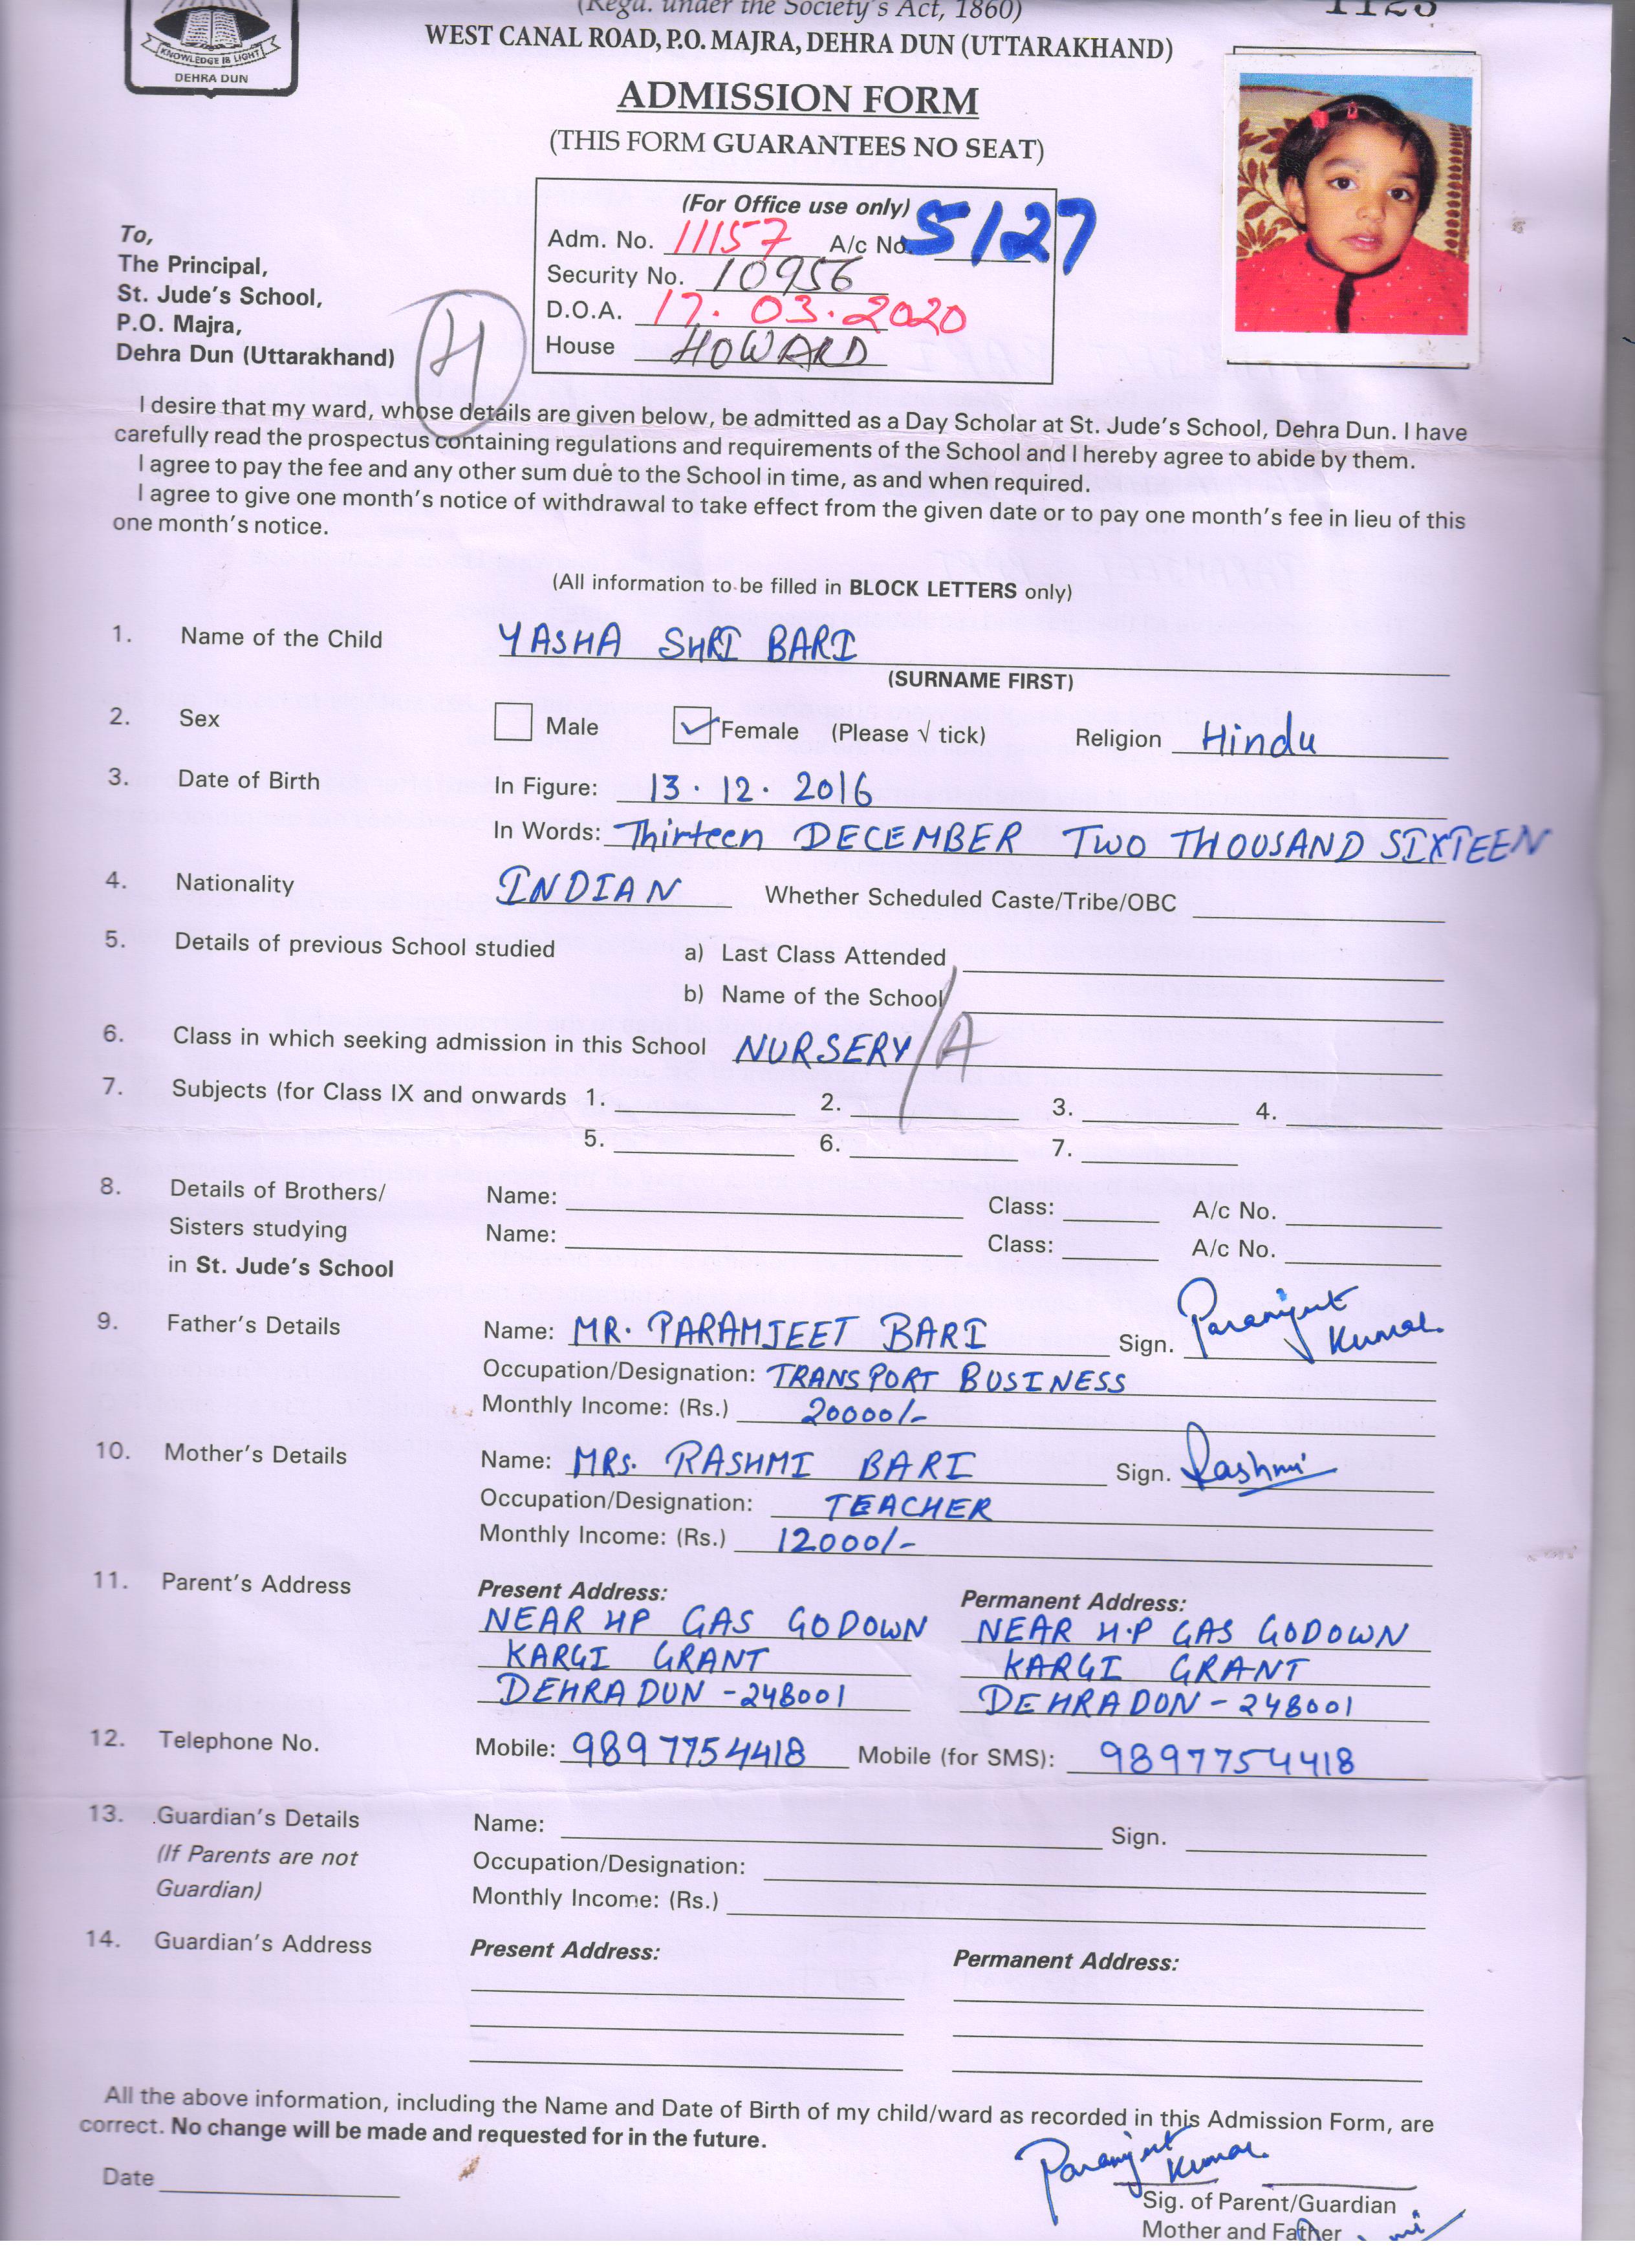 (Regd. under the Society's Act, 1860)
WEST CANAL ROAD, P.O. MAJRA, DEHRA DUN (UTTARAKHAND)
KNOWLEDGE IS LIGHT
DEHRA DUN
ADMISSION FORM
(THIS FORM GUARANTEES NO SEAT)
(For Office use only)
Adm. No. 11157 A/c No. 5127
Security No. 10956
D.O.A. 17.03.2020
House HOWARD
To,
The Principal,
St. Jude's School,
P.O. Majra,
Dehra Dun (Uttarakhand)
H
I desire that my ward, whose details are given below, be admitted as a Day Scholar at St. Jude's School, Dehra Dun. I have
carefully read the prospectus containing regulations and requirements of the School and I hereby agree to abide by them.
I agree to pay the fee and any other sum due to the School in time, as and when required.
I agree to give one month's notice of withdrawal to take effect from the given date or to pay one month's fee in lieu of this
one month's notice.
(All information to be filled in BLOCK LETTERS only)
1. Name of the Child YASHA SHRI BARI
(SURNAME FIRST)
2. Sex Male Female (Please √ tick) Religion Hindu
3. Date of Birth In Figure: 13.12.2016
In Words: Thirteen DECEMBER TWO THOUSAND SIXTEEN
4. Nationality INDIAN Whether Scheduled Caste/Tribe/OBC
5. Details of previous School studied a) Last Class Attended
b) Name of the School
6. Class in which seeking admission in this School NURSERY/A
7. Subjects (for Class IX and onwards 1. 2. 3. 4.
5. 6. 7.
8. Details of Brothers/ Name: Class: A/c No.
Sisters studying Name: Class: A/c No.
in St. Jude's School
9. Father's Details Name: MR. PARAMJEET BARI Sign. Paramjeet Kumar
Occupation/Designation: TRANSPORT BUSINESS
Monthly Income: (Rs.) 20000/-
10. Mother's Details Name: MRS. RASHMI BARI Sign. Rashmi
Occupation/Designation: TEACHER
Monthly Income: (Rs.) 12000/-
11. Parent's Address Present Address: Permanent Address:
NEAR HP GAS GODOWN NEAR H.P GAS GODOWN
KARGI GRANT KARGI GRANT
DEHRADUN - 248001 DEHRADUN - 248001
12. Telephone No. Mobile: 9897754418 Mobile (for SMS): 9897754418
13. Guardian's Details Name: Sign.
(If Parents are not Occupation/Designation:
Guardian) Monthly Income: (Rs.)
14. Guardian's Address Present Address: Permanent Address:
All the above information, including the Name and Date of Birth of my child/ward as recorded in this Admission Form, are
correct. No change will be made and requested for in the future.
Paramjeet Kumar
Date
Sig. of Parent/Guardian
Mother and Father